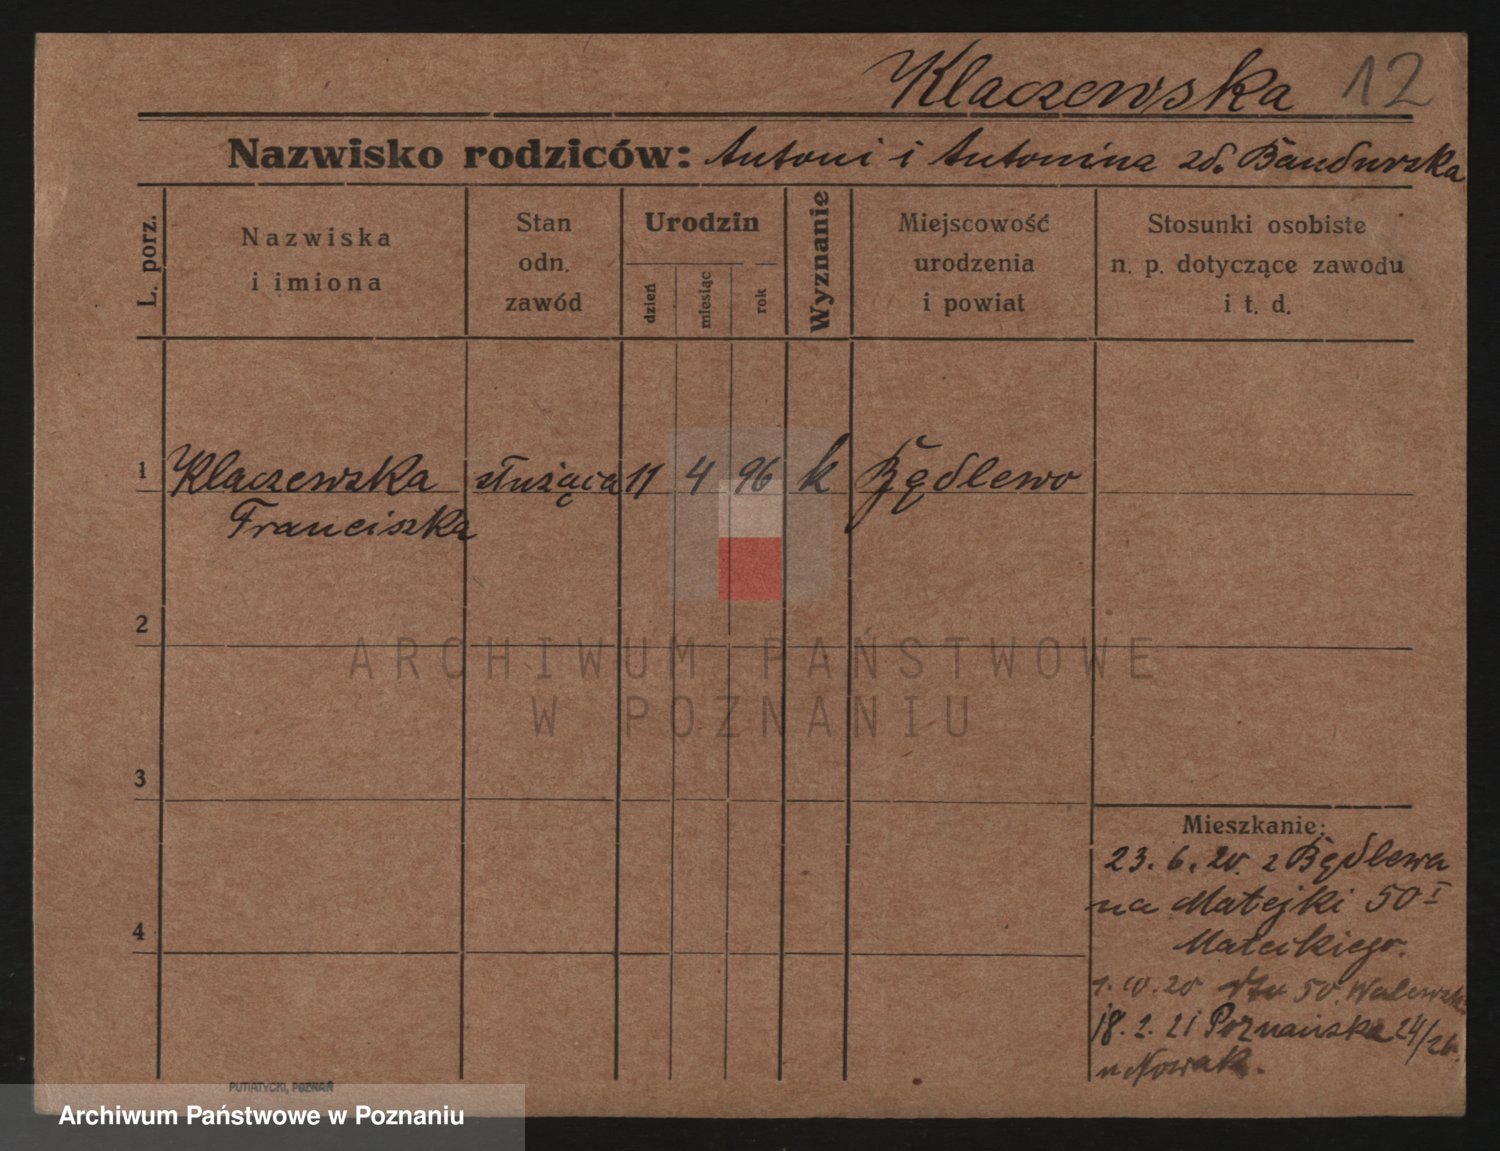 Klaczewska 12
Nazwisko rodziców: Antoni i Antonina zd. Bandurska
L. porz.
Nazwiska
i imiona
Stan
odn.
zawód
Urodzin
dzień
miesiąc
rok
Wyznanie
Miejscowość
urodzenia
i powiat
Stosunki osobiste
n. p. dotyczące zawodu
i t. d.
1 Klaczewska służąca 11 4 96 k Będlewo
Franciszka
2
ARCHIWUM PAŃSTWOWE
W POZNANIU
3
Mieszkanie:
23. 6. 20. z Będlewa
na Matejki 50 I
4
50. Walewsk
18. 2. 21 Poznańska 24/26.
u Nowak.
PUTIATYCKI, POZNAŃ
Archiwum Państwowe w Poznaniu